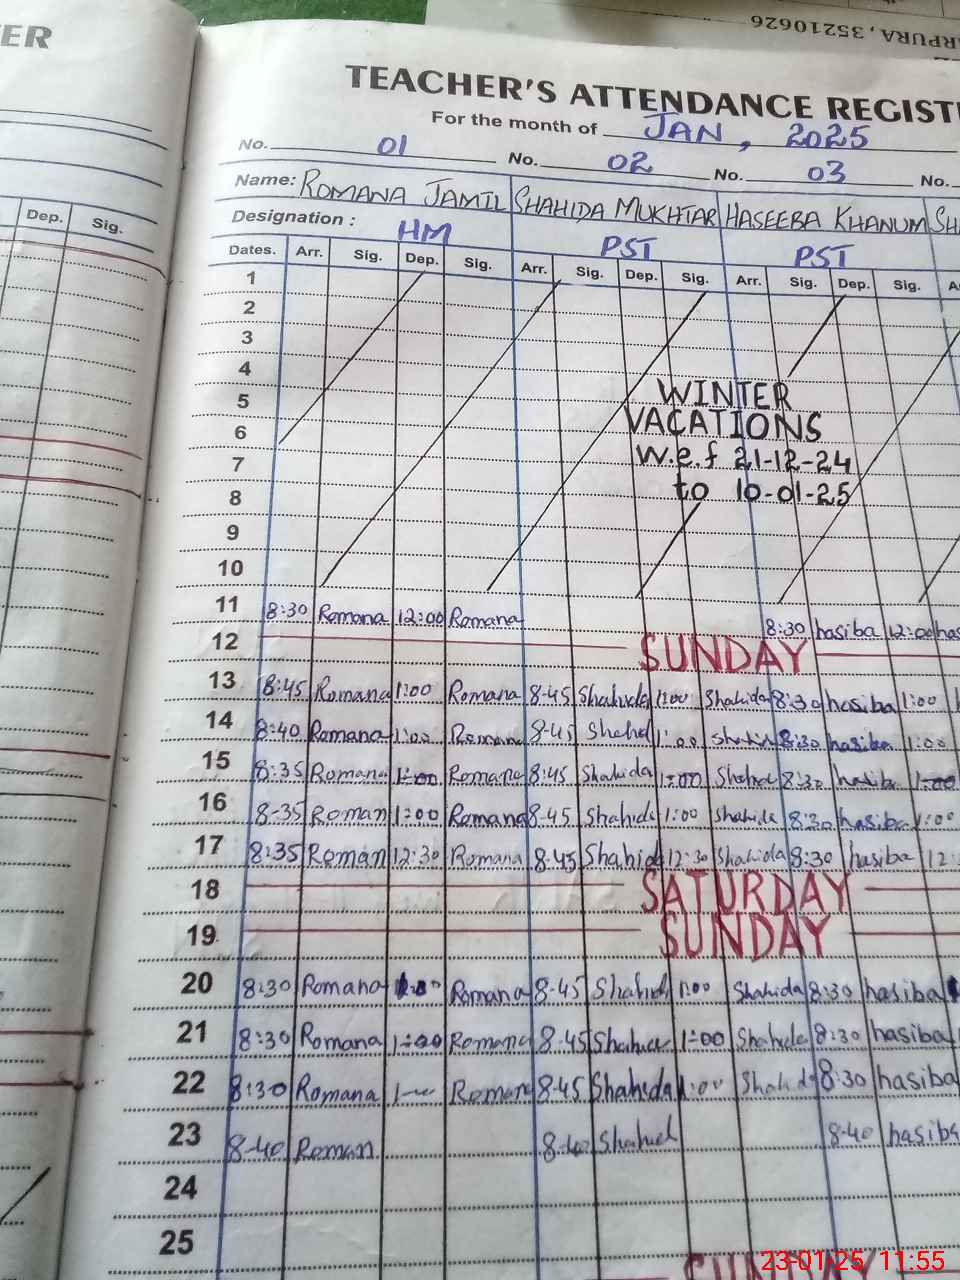 ER
RPURA, 35210626
TEACHER'S ATTENDANCE REGISTE
For the month of JAN, 2025
No. 01 No. 02 No. 03 No.
Name: ROMANA JAMIL SHAHIDA MUKHTAR HASEEBA KHANUM SH
Designation : HM PST PST
Dep. Sig.
Dates. Arr. Sig. Dep. Sig. Arr. Sig. Dep. Sig. Arr. Sig. Dep. Sig. A
1
2
3
4
5 WINTER
6 VACATIONS
7 w.e.f 21-12-24
8 to 10-01-25
9
10
11 8:30 Romana 12:00 Romana 8:30 hasiba 12:00 has
12 SUNDAY
13 8:45 Romana 1:00 Romana 8-45 Shahida 1:00 Shahida 8:30 hasiba 1:00
14 8:40 Romana 1:00 Romana 8-45 Shahid 1:00 Shahid 8:30 hasiba 1:00
15 8:35 Romana 1:00 Romana 8:45 Shahida 1:00 Shahid 8:30 hasiba 1:00
16 8-35 Roman 1:00 Romana 8-45 Shahida 1:00 Shahida 8:30 hasiba 1:00
17 8:35 Roman 12:30 Romana 8-45 Shahid 12:30 Shahida 8:30 hasiba 12:
18 SATURDAY
19 SUNDAY
20 8:30 Romana 1:00 Romana 8-45 Shahid 1:00 Shahida 8:30 hasiba
21 8:30 Romana 1:00 Romana 8-45 Shahida 1:00 Shahida 8:30 hasiba
22 8:30 Romana Roman 8-45 Shahida 1:00 Shahida 8:30 hasiba
23 8-40 Roman 8-40 Shahid 8-40 hasiba
24
25
SUNDAY
23-01-25 11:55